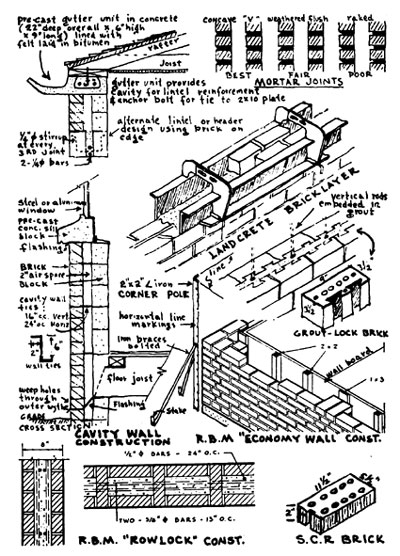 pre-cast gutter unit in concrete
(22" deep overall x 6" high
x 9" long) lined with
felt 12½" in bitumen
rafter
Joist
gutter unit provides
cavity for lintel reinforcement
& anchor bolt for tie to 2x10 plate
alternate lintel or header
design using brick on
edge
¼"ϕ stirrup
at every
3RD joint
2-¼ϕ bars
concave "V"
weathered flush
raked
BEST
FAIR
POOR
MORTAR JOINTS
LANDCRETE BRICKLAYER
steel or alum
window
pre-cast
conc. sill
block
flashing
BRICK
2" air space
BLOCK
cavity wall
ties:
16" cc. Vert
24" oc Horiz
2"
6"
wall ties
weep holes
through
outer wythe
GRADE
CROSS SECTION
floor joist
Flashing
CAVITY WALL
CONSTRUCTION
line
2"x2" L iron
CORNER POLE
horizontal line
markings
iron braces
bolted
Stake
vertical rods
embedded in
grout
3½
3½
GROUT-LOCK BRICK
2 x 2
wall board
1 x 3
R.B.M "ECONOMY WALL CONST.
8"
½" ϕ BARS - 24" O.C.
TWO - 3/8" ϕ BARS - 15" O.C.
R.B.M. "ROWLOCK" CONST.
11½"
S.C.R BRICK